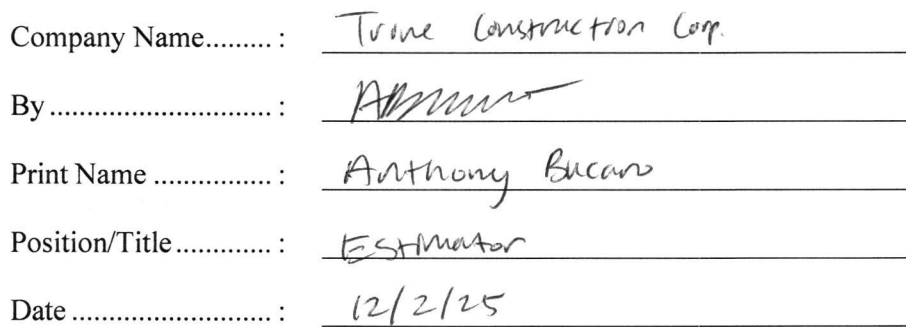 Company Name......... : Trine Construction Corp.
By ............................ :
Print Name ............... : Anthony Bucaro
Position/Title ............. : Estimator
Date ......................... : 12/2/25